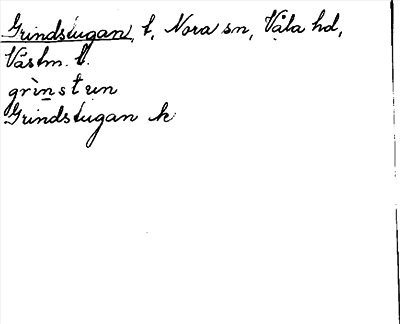 Grindstugan, t, Nora sn, Våla hd,
Västm. l.
grìnstun
Grindstugan k